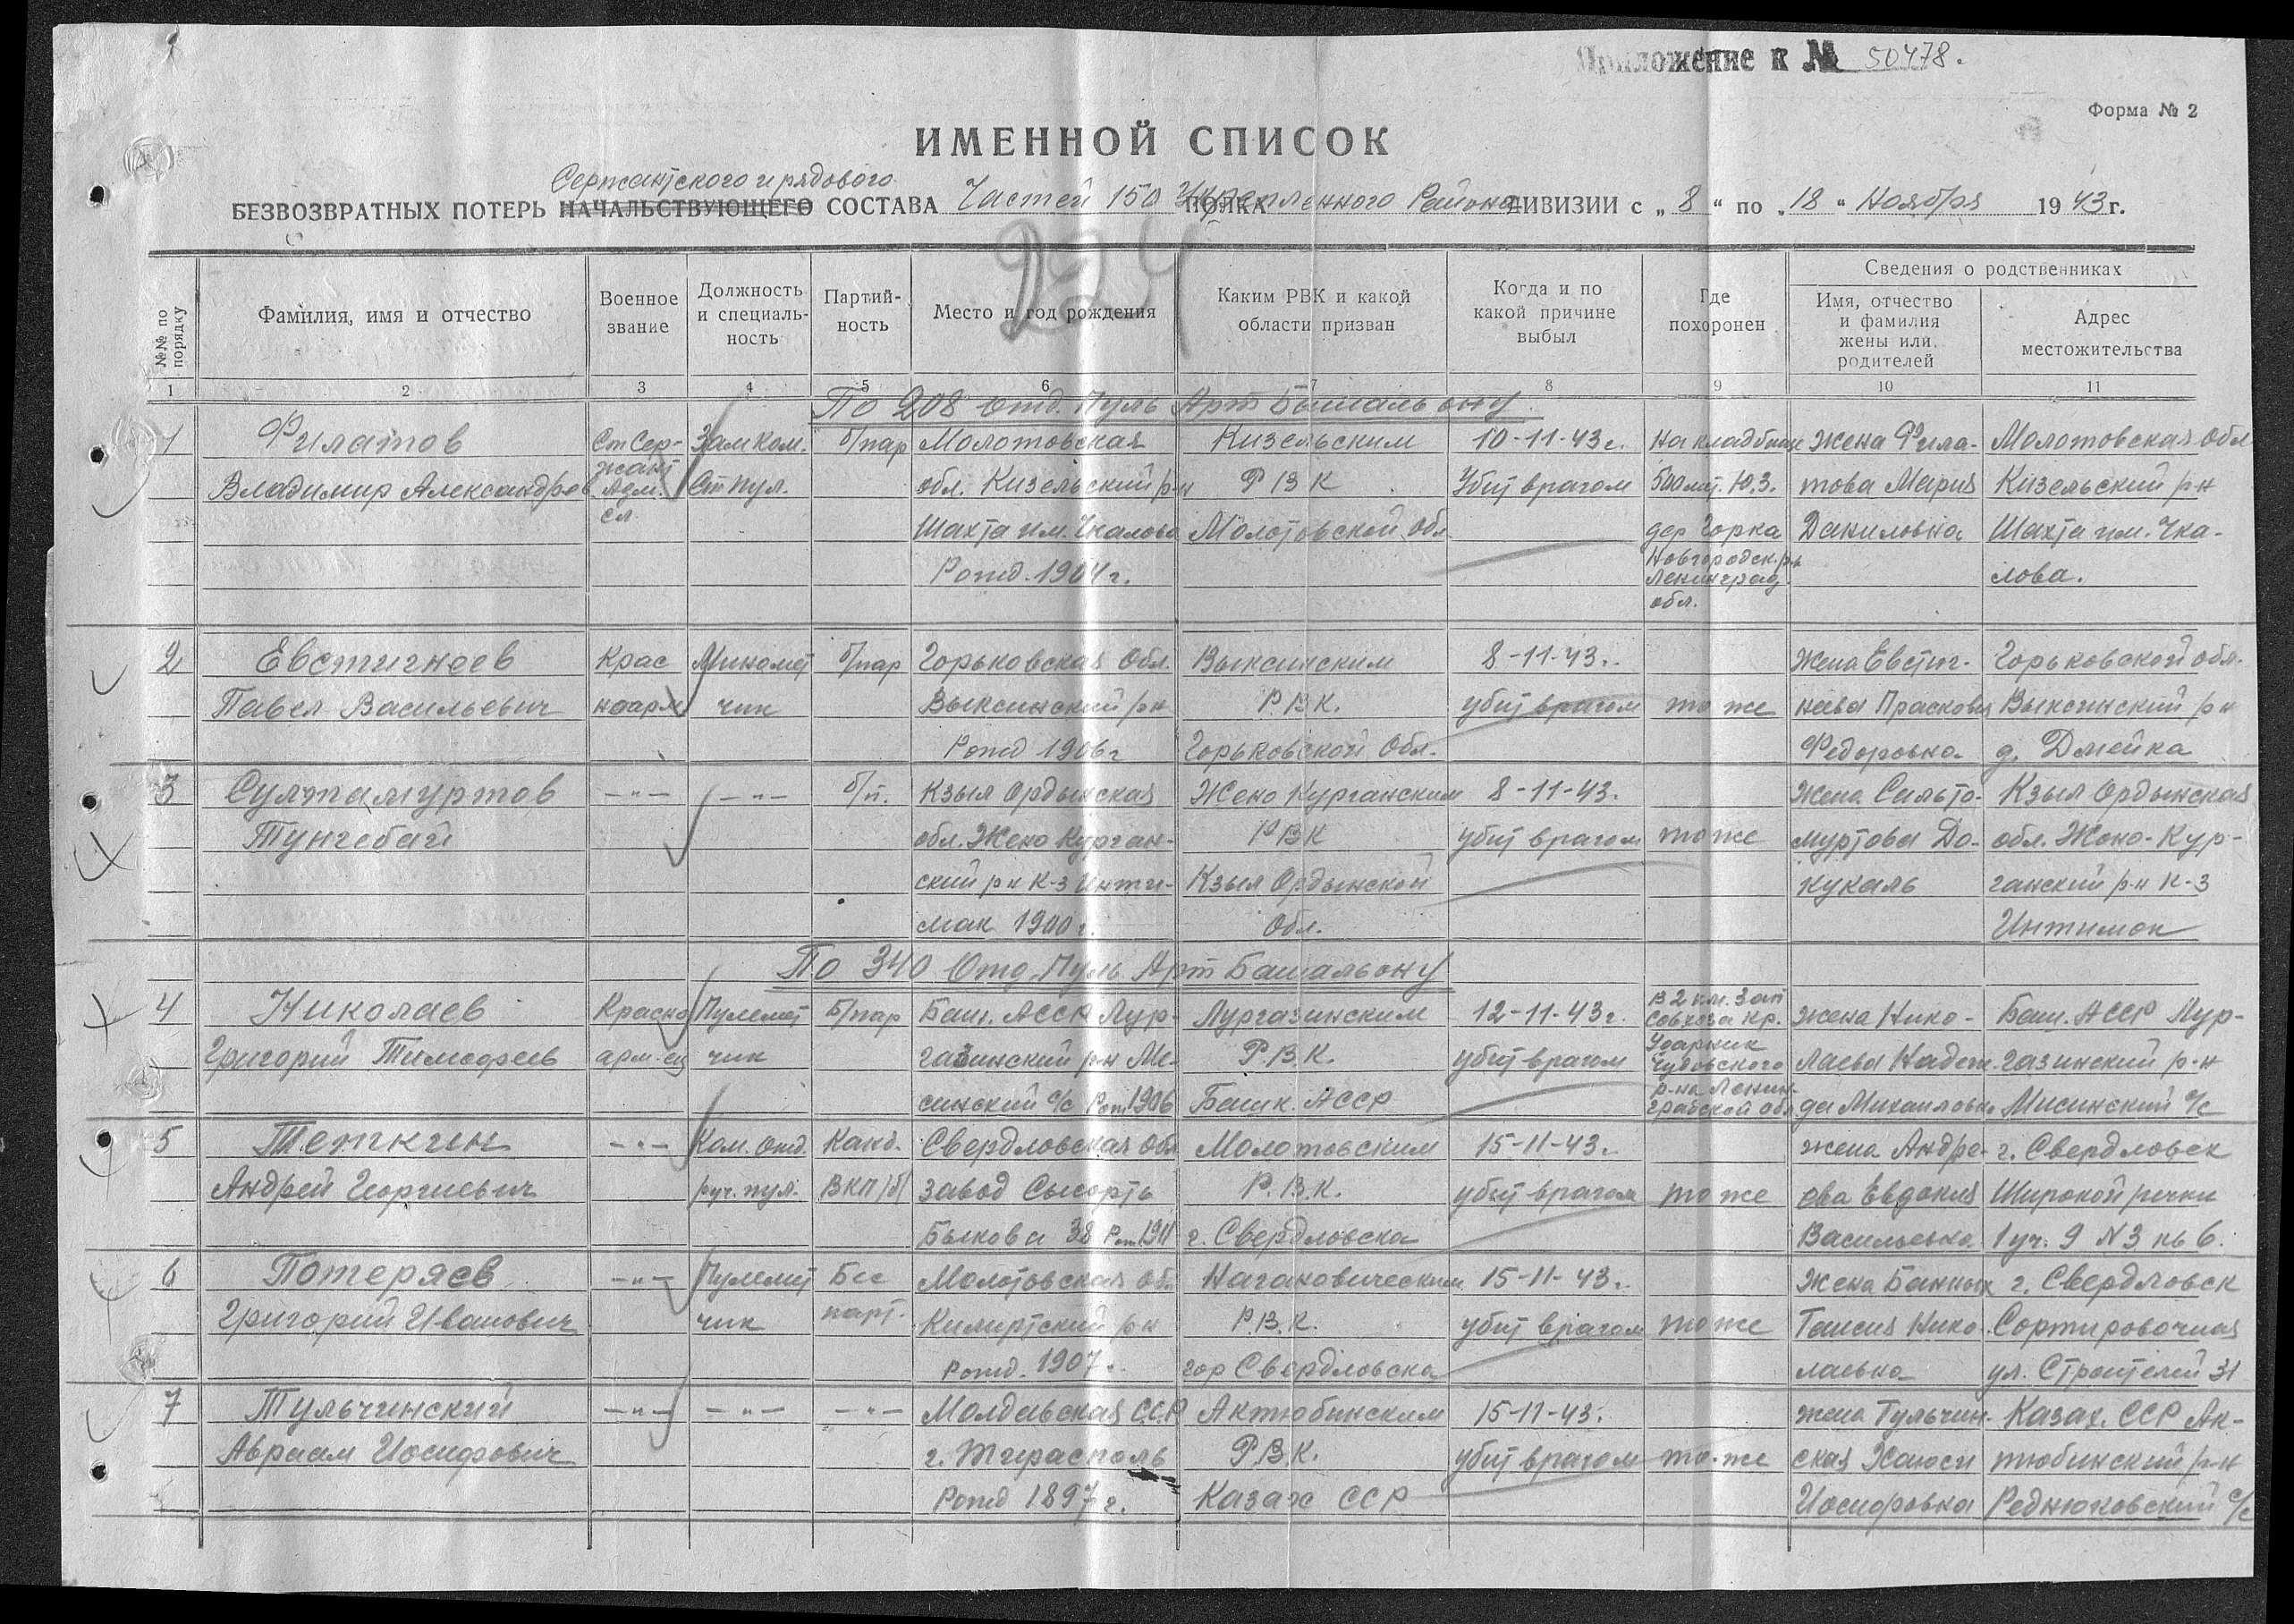 Приложение к № 50478.
Форма № 2
ИМЕННОЙ СПИСОК
Сержантского и рядового
БЕЗВОЗВРАТНЫХ ПОТЕРЬ НАЧАЛЬСТВУЮЩЕГО СОСТАВА Частей 150 Укрепленного Района ПОЛКА ДИВИЗИИ с „ 8 “ по „ 18 “ Ноября 1943 г.
224
№№ по порядку
Фамилия, имя и отчество
Военное звание
Должность и специальность
Партийность
Место и год рождения
Каким РВК и какой области призван
Когда и по какой причине выбыл
Где похоронен
Сведения о родственниках
Имя, отчество и фамилия жены или родителей
Адрес местожительства
1 2 3 4 5 6 7 8 9 10 11
По 208 Отд. Пуль Арт Батальону
1 Филатов Ст Сер- Зам Ком. б/пар Молотовская Кизельским 10-11-43 г. на кладбище Жена Фила- Молотовская обл
Владимир Александров жант Адм. сл Ст пул. обл. Кизельский р-н РВК Убит врагом 500 мт. Ю.З. това Мария Кизельский р-н
Шахта им. Чкалова Молотовской Обл дер Горка Даниловна Шахта им. Чка-
Рожд. 1904 г. Новгородск. р-н Ленинград обл. лова.
2 Евстигнеев Крас Миномет б/пар Горьковская Обл. Выксинским 8-11-43г. Жена Евстиг- Горьковской обл.
Павел Васильевич ноарм чик Выксинский р-н Р.В.К. убит врагом то же неева Прасковья Выксинский р-н
Рожд 1906 г Горьковской Обл. Федоровна д. Дмейка
3 Султамуртов —"— —"— б/п. Кзыл Ордынская Жено Курганским 8-11-43. Жена Сальта- Кзыл Ордынская
Тунгебай обл. Жено Курган- РВК убит врагом то же муртова До- обл. Жено-Кур-
ский р-н К-з Инти- Кзыл Ордынской кукаль ганский р-н К-з
мак 1900 г. Обл. Интимак
По 340 Отд. Пуль Арт Батальону
4 Николаев Красно Пулемет Б/пар Баш. АССР Аур- Аургазинским 12-11-43 г. В 2 км. Зап Совхоза кр. Жена Нико- Баш. АССР Аур-
Григорий Тимофеев арм-ец чик газинский р-н Ме- Р.В.К. убит врагом Ударник Чудовского лаева Надеж- газинский р-н
синский с/с Рож 1906 Башк. АССР р-на Ленинградской обл да Михаиловна Мисинский с/с
5 Тепкин —"— Ком. отд. Канд. Свердловская Обл Молотовским 15-11-43г. жена Андре- г. Свердловск
Андрей Георгиевич руч. пул. ВКП/б/ завод Сысерть Р.В.К. убит врагом то же ева Евдокия Широкой речки
Быкова 38 Рож 1911 г. Свердловска Васильевна 1 уч. 9 N3 кв 6.
6 Потеряев —"— Пулемет Бес Молотовская Об. Кагановическим 15-11-43г. Жена Банных г. Свердловск
Григорий Иванович чик парт. р-н Р.В.К. убит врагом то же Таисия Нико- Сортировочная
Рожд. 1907 г. гор Свердловска лаевна ул. Строителей 31
7 Тульчинский —"— —"— —"— Молдавская ССР Актюбинским 15-11-43. жена Тульчин- Казах. ССР Ак-
Авраам Иосифович г. Тирасполь Р.В.К. убит врагом то-же ская Хаюси тюбинский р-н
Рожд 1897 г. Казах ССР Иосифовна с/с